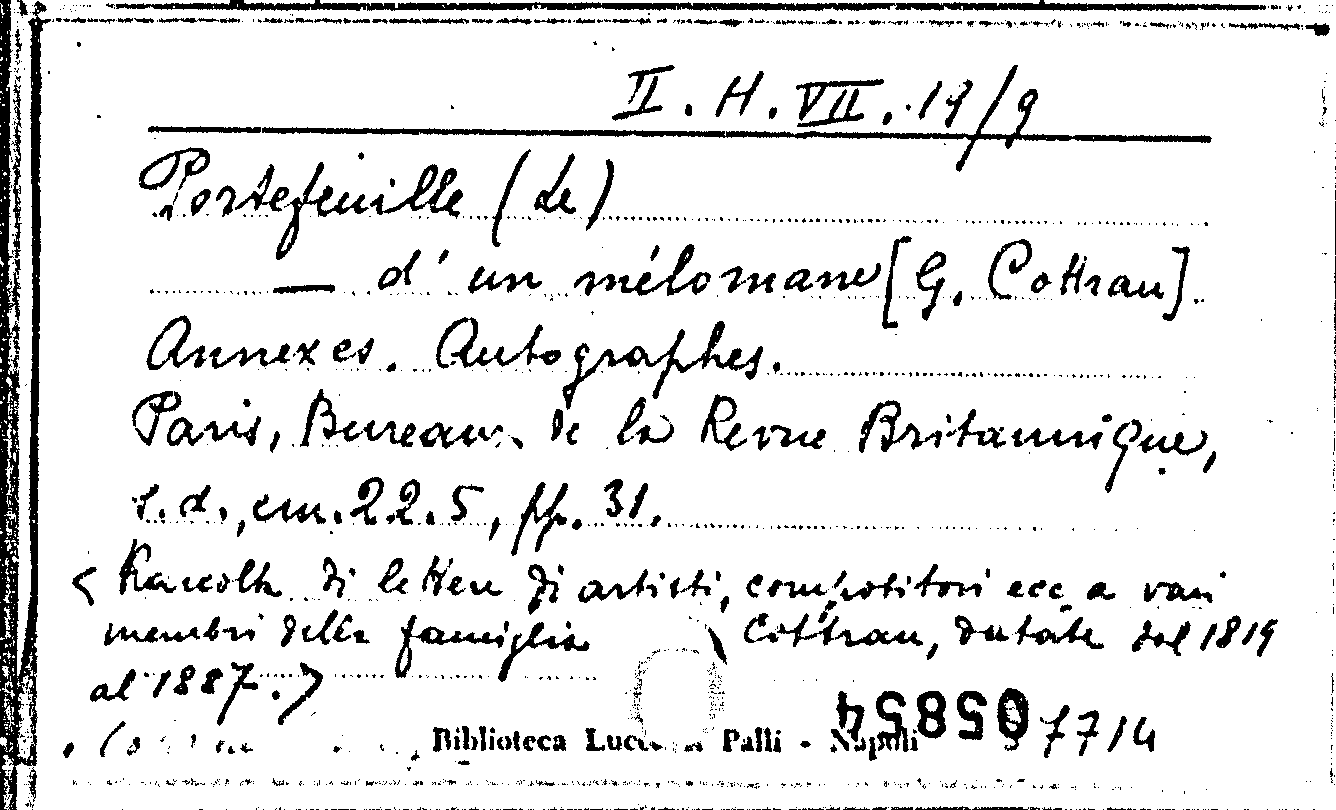 II. H. VII. 19/9
Portefeuille (Le)
— d'un mélomane [G. Cottrau].
Annexes. Autographes.
Paris, Bureau de la Revue Britannique,
s.d., cm. 22.5, pp. 31.
< Raccolta di lettere di artisti, compositori ecc. a vari
membri della famiglia Cottrau, datate dal 1819
al 1887. >
Biblioteca Palli - Napoli
058854
7714